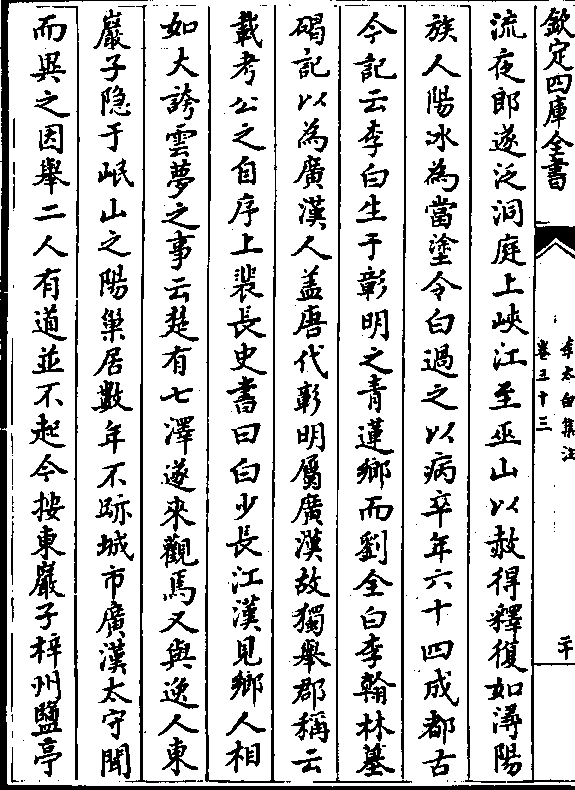 欽定四庫全書
李太白集注
卷三十三
二十
流夜郎遂泛洞庭上峽江至巫山以赦得釋復如潯陽
族人陽冰為當塗令白過之以病卒年六十四成都古
今記云李白生于彰明之青蓮鄉而劉全白李翰林墓
碣記以為廣漢人蓋唐代彰明屬廣漢故獨舉郡稱云
載考公之自序上裴長史書曰白少長江漢見鄉人相
如大誇雲夢之事云楚有七澤遂來觀焉又與逸人東
巖子隐于岷山之陽巢居數年不跡城市廣漢太守聞
而異之因舉二人有道並不起今按東巖子梓州鹽亭